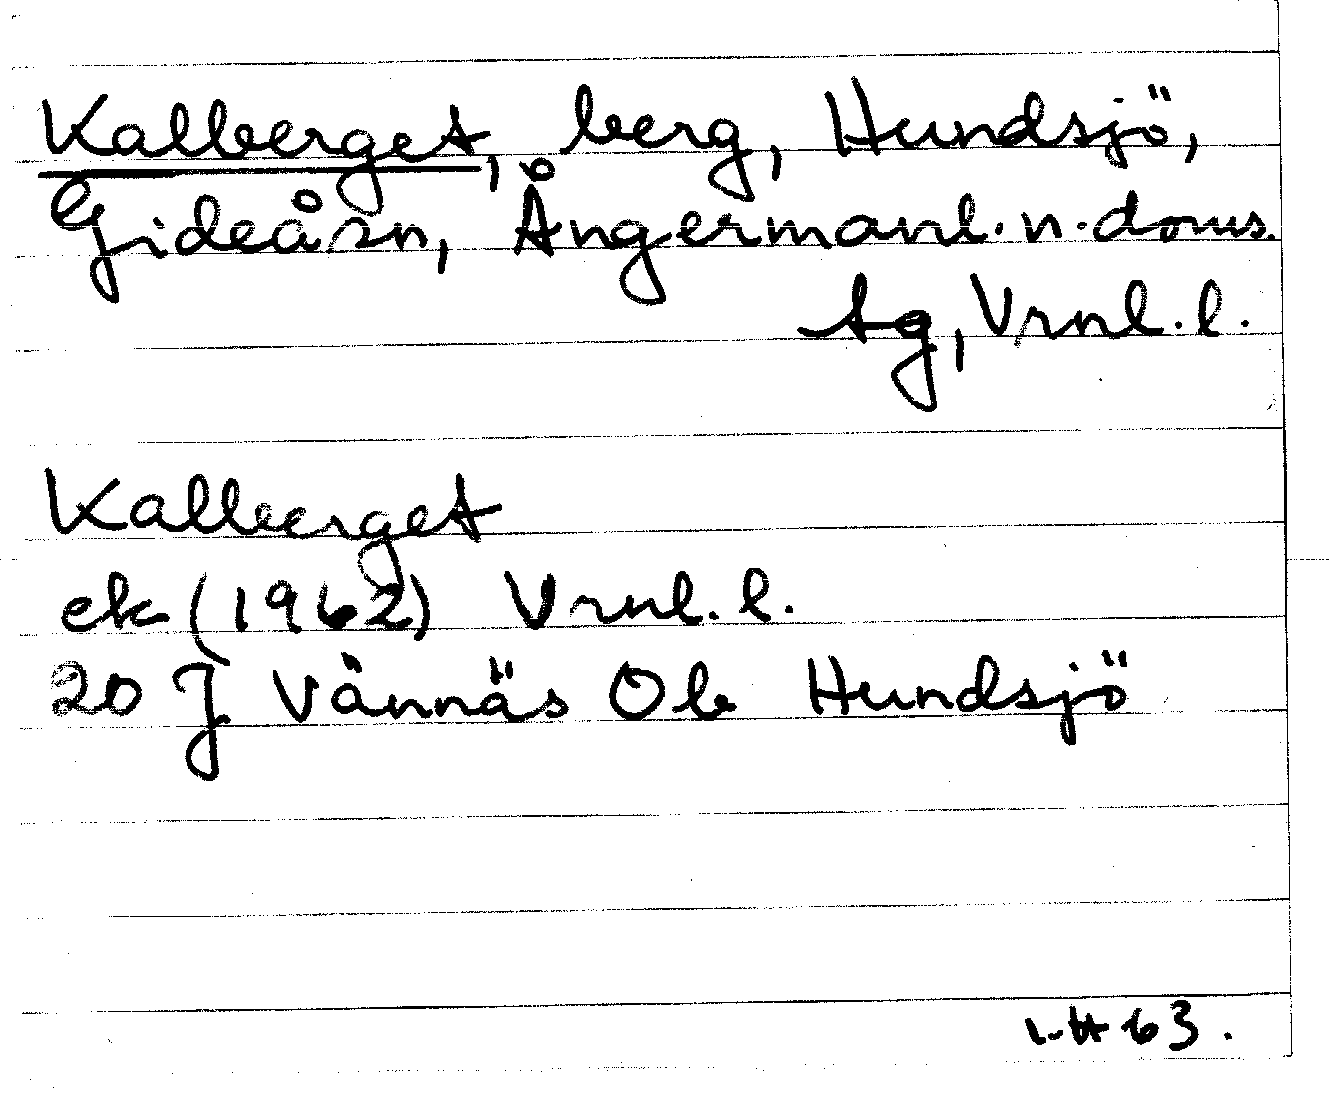 Kalberget, berg, Hundsjö,
Gideå sn, Ångermanl. n. doms.
Ag, Vrnl. l.
Kalberget
ek (1962) Vrnl. l.
20 J Vännäs Ob Hundsjö
63.